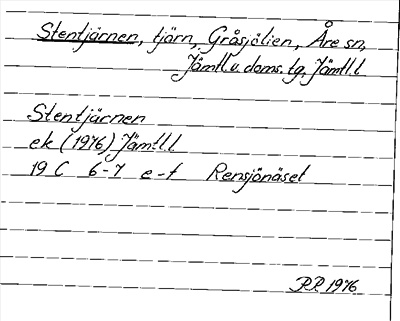 Stentjärnen, tjärn, Gråsjölien, Åre sn,
Jämtl.v. doms. tg, Jämtl.l
Stentjärnen
ek (1976) Jämtl.l
19 C 6-7 e-f Rensjönäset
RR 1976